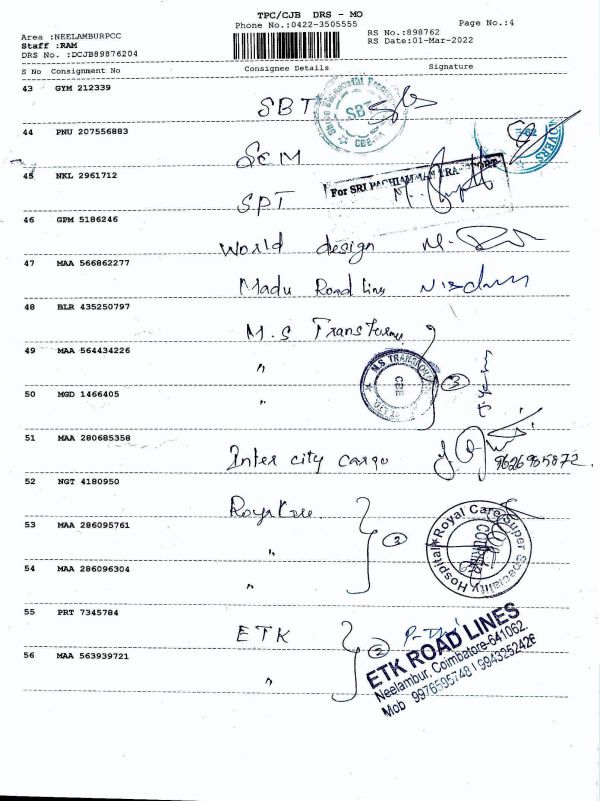 TPC/CJB DRS - MO
Phone No.:0422-3505555
Page No.:4
Area :NEELAMBURPCC
Staff :RAM
DRS No. :DCJB89876204
RS No.:898762
RS Date:01-Mar-2022
S No Consignment No Consignee Details Signature
43 GYM 212339
SBT
SBT
CBE
44 PNU 207556883
SCM
45 NKL 2961712
For SRI PACHIAMMAN TRANSPORT
SPT
46 GPM 5186246
World design
47 MAA 566862277
Madu Road Line
48 BLR 435250797
M.S
49 MAA 564434226
"
M.S TRANSPORT
CBE
3
50 MGD 1466405
"
51 MAA 280685358
Inter city cargo
9626985872.
52 NGT 4180950
Royal Care
53 MAA 286095761
"
3
Royal Care Super Speciality Hospital
54 MAA 286096304
"
55 PRT 7345784
ETK
2
ETK ROAD LINES
Neelambur, Coimbatore-641062.
Mob 9976595748 / 9943252426
56 MAA 563939721
"